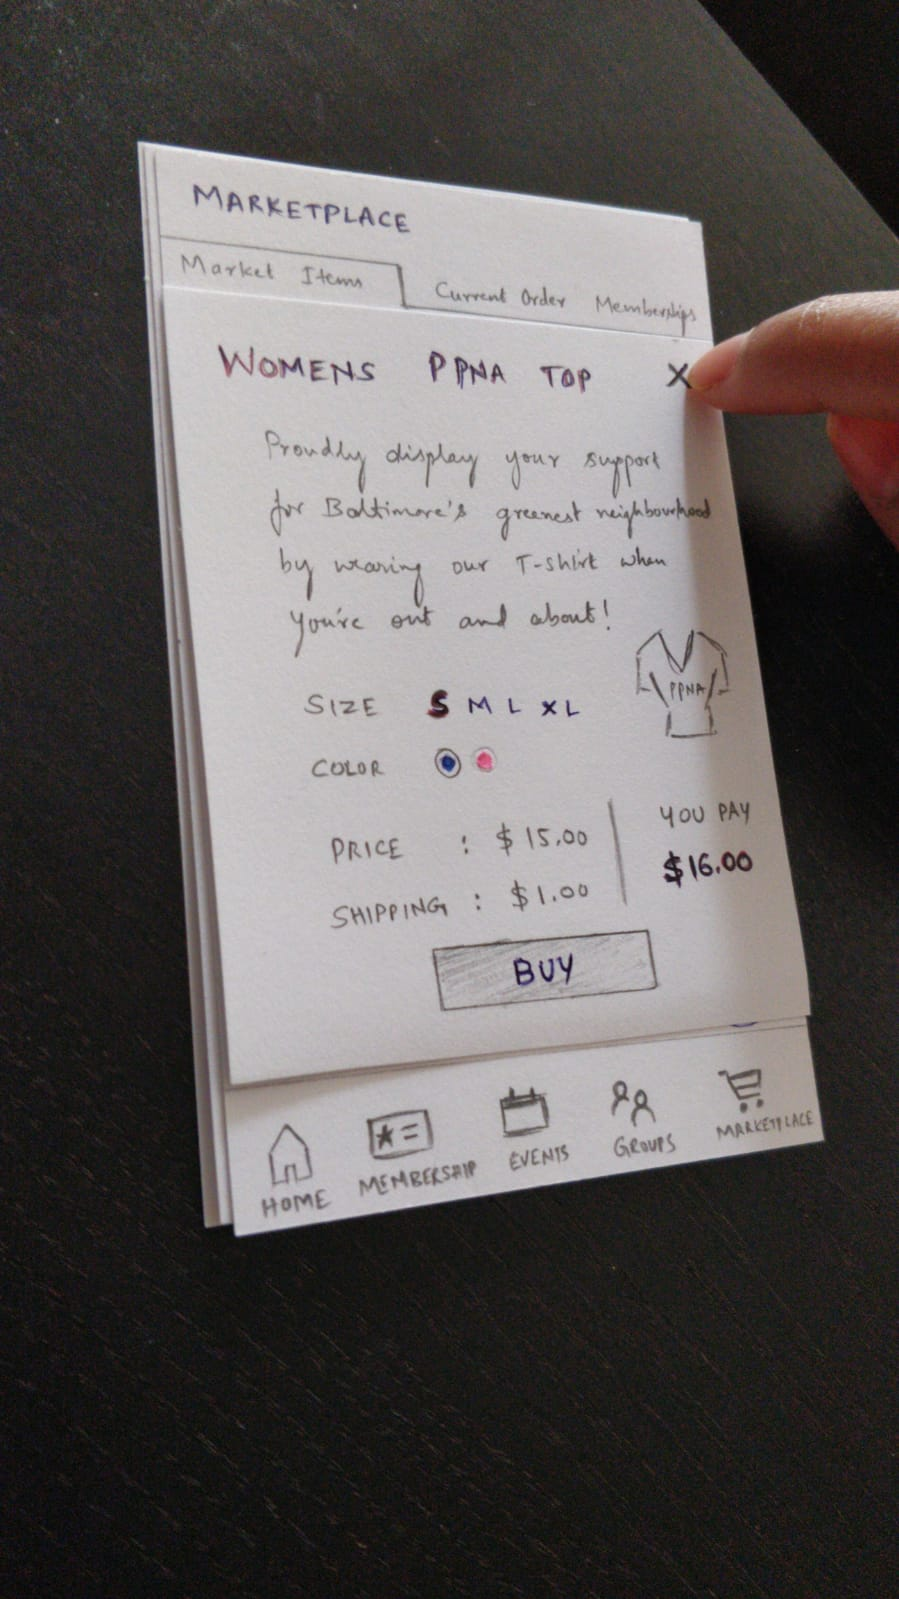 MARKETPLACE
Market Items Current Order Memberships
WOMENS PPNA TOP X
Proudly display your support
for Baltimore's greenest neighbourhood
by wearing our T-shirt when
you're out and about!
PPNA
SIZE S M L XL
COLOR
PRICE : $15.00
SHIPPING : $1.00
YOU PAY
$16.00
BUY
HOME MEMBERSHIP EVENTS GROUPS MARKETPLACE